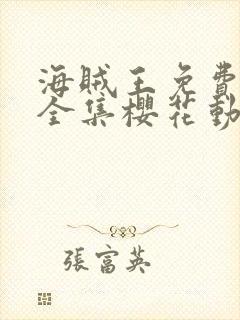 海賊王免費
全集櫻花動
張富英